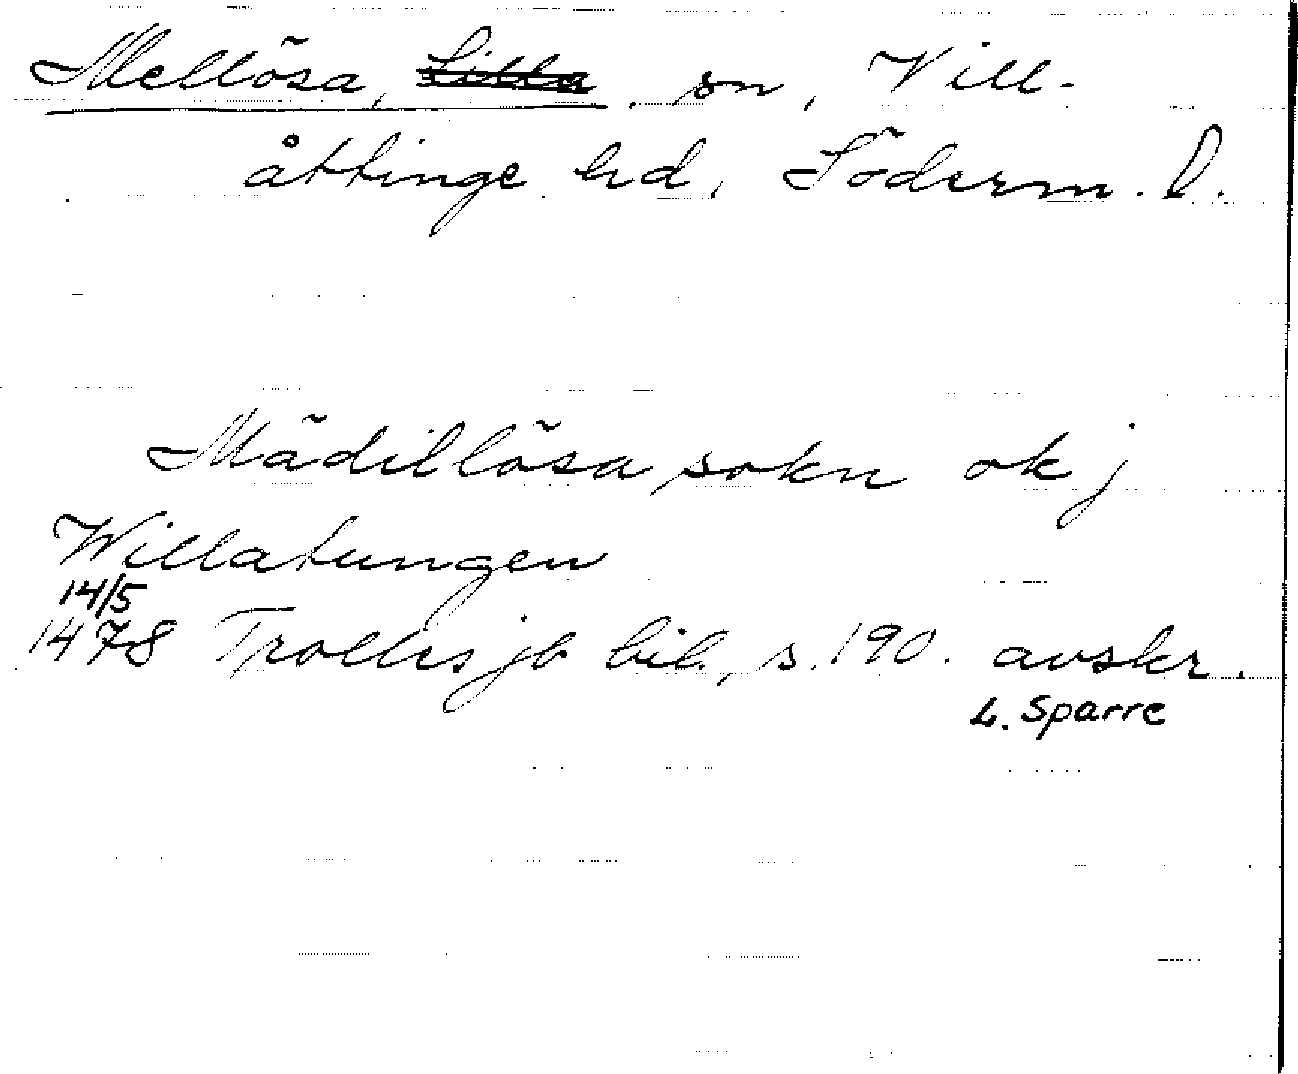 Mellösa, ~~Lilla~~ sn, Vill-
åttinge hd, Söderm. l.
Mädillösa sokn ok j
Willatungen
14/5
1478 Trolles jb bil., s. 190. avskr.
L. Sparre